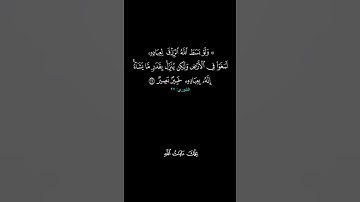 ۞ وَلَوْ بَسَطَ ٱللَّهُ ٱلرِّزْقَ لِعِبَادِهِۦ
لَبَغَوْا۟ فِى ٱلْأَرْضِ وَلَٰكِن يُنَزِّلُ بِقَدَرٍ مَّا يَشَآءُ
إِنَّهُۥ بِعِبَادِهِۦ خَبِيرٌۢ بَصِيرٌ ٢٧
الشورى: ٢٧